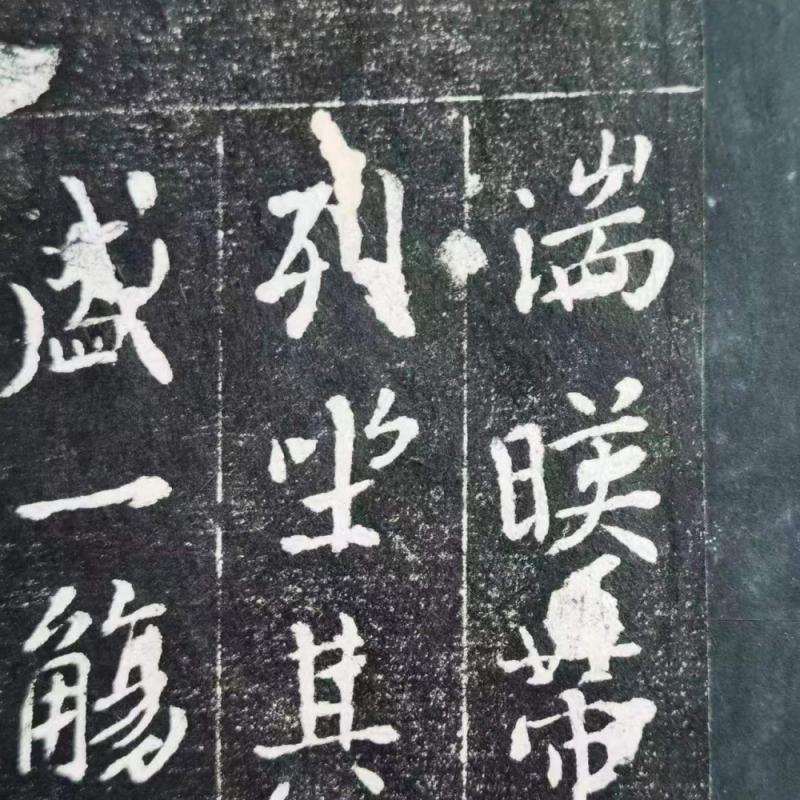 湍暎帶
列坐其
盛一觴